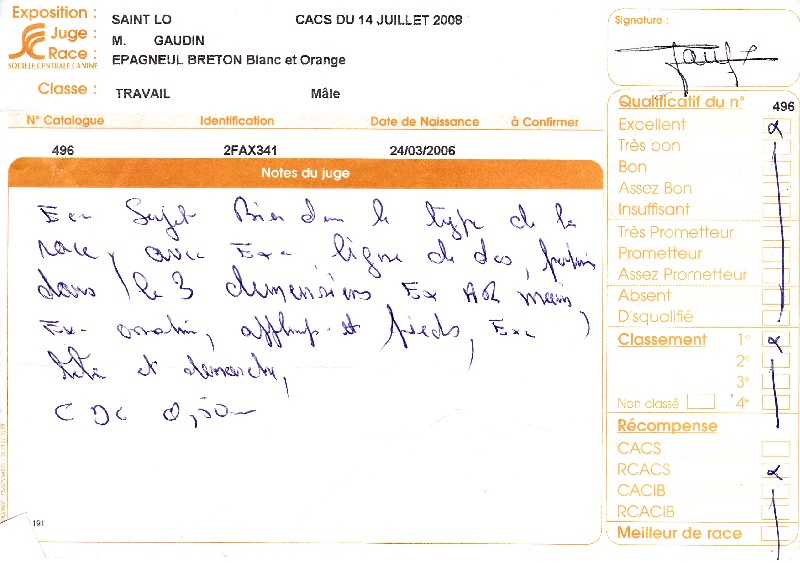 Exposition : SAINT LO CACS DU 14 JUILLET 2008
Juge : M. GAUDIN
Race : EPAGNEUL BRETON Blanc et Orange
SOCIÉTÉ CENTRALE CANINE
Classe : TRAVAIL Mâle
N° Catalogue Identification Date de Naissance à Confirmer
496 2FAX341 24/03/2006
Notes du juge
Sujet Bien dans le type de la
race, avec Exc ligne de dos,
dans le 3 dimensions Ex AR main,
Exc et pieds, Exc
tête et démarche,
191
Signature :
Qualificatif du n° 496
Excellent
Très bon
Bon
Assez Bon
Insuffisant
Très Prometteur
Prometteur
Assez Prometteur
Absent
Disqualifié
Classement 1°
2°
3°
Non classé 4°
Récompense
CACS
RCACS
CACIB
RCACIB
Meilleur de race